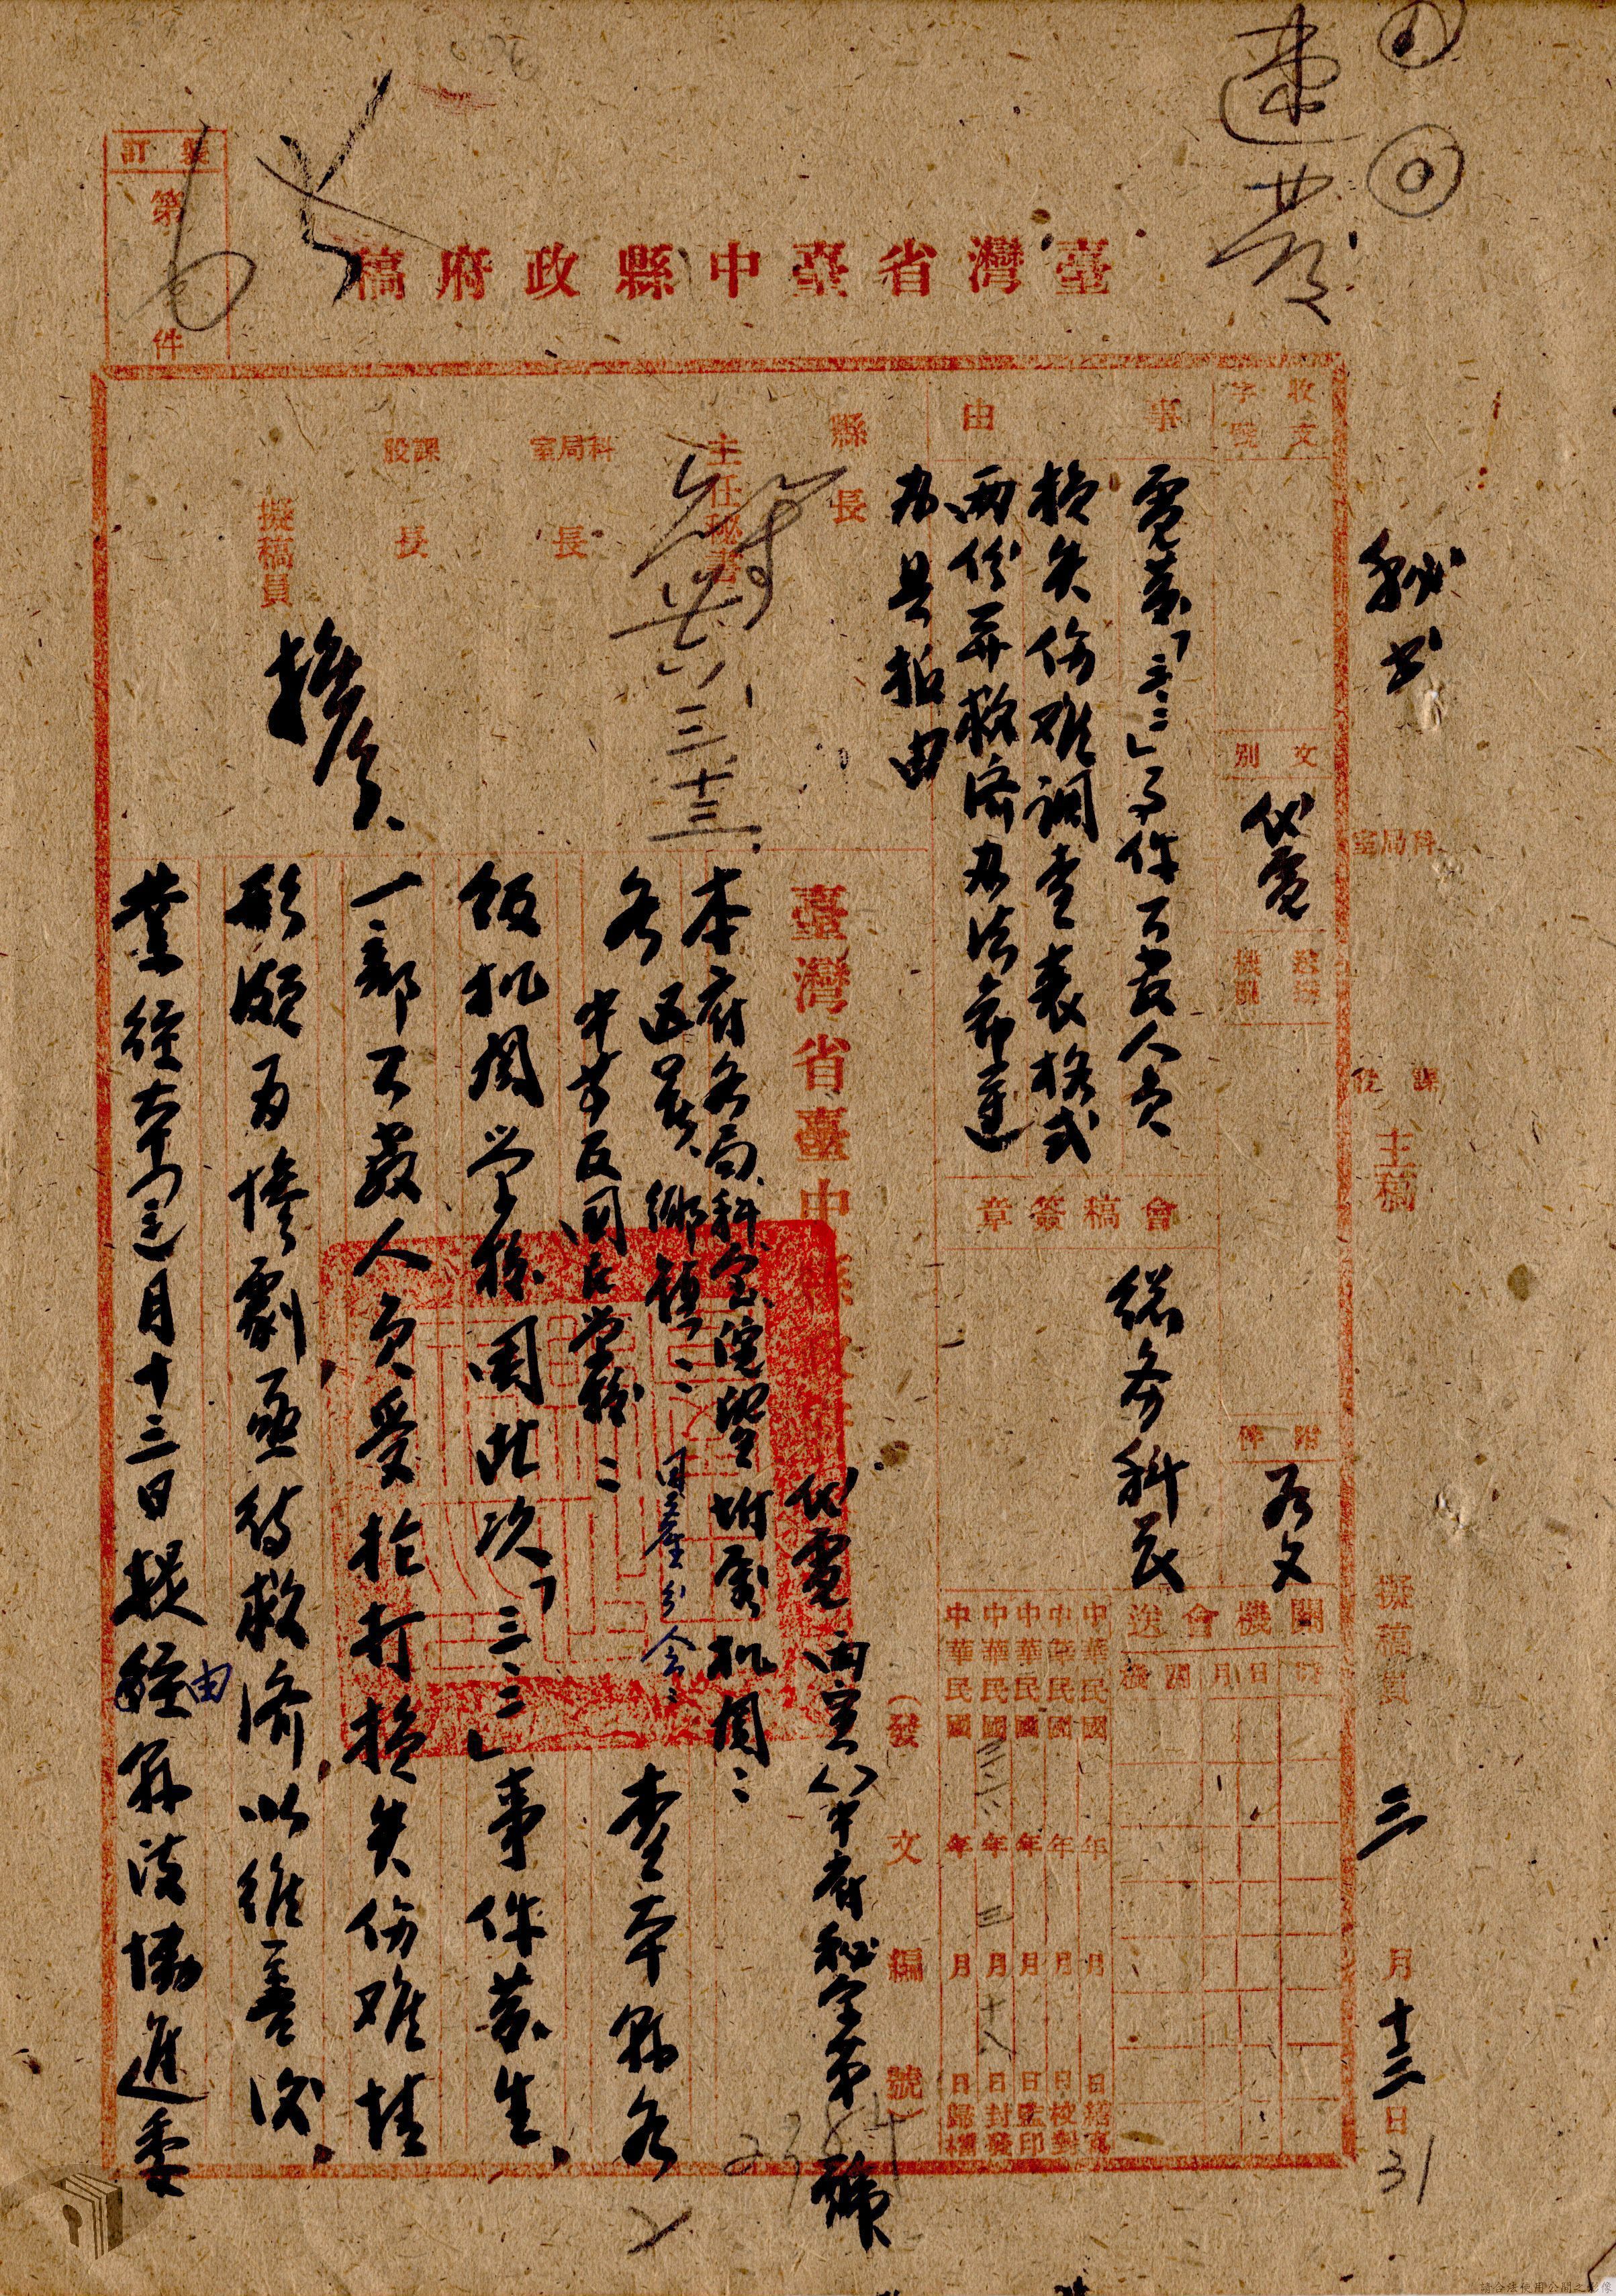 速發
臺灣省臺中縣政府稿
裝訂
第
件
收文
字號
文別
代電
送達
機關
附件
如文
事由
電發「三.二」事件公教人員
損失傷难調查表格式
兩份并救濟办法希遵
办具报由
縣長
主任秘書
卅六、三、十三
科局室
長
課股
長
擬稿員
會稿簽章
總务科長
關機會送
機關
月日
時
中華民國 年 月 日繕寫
中華民國 年 月 日校對
中華民國 年 月 日監印
中華民國三六年三月十八日封發
中華民國 年 月 日歸檔
（發文編號）
2384
秘书
科局室
課股
主稿
擬稿員
三月十三日
31
臺灣省臺中縣政府代電
府秘字第 號
本府各局科室澽望附屬机関
各区署、鄉鎮
中等及国民学校
查本縣各
级机関学校因此次「三.二」事件發生、
一部公教人員受於打損失傷难情
形頗为惨劇亟待救濟以維善後、
業經本年三月十三日提經由縣後協進委
請合法使用公開之影像